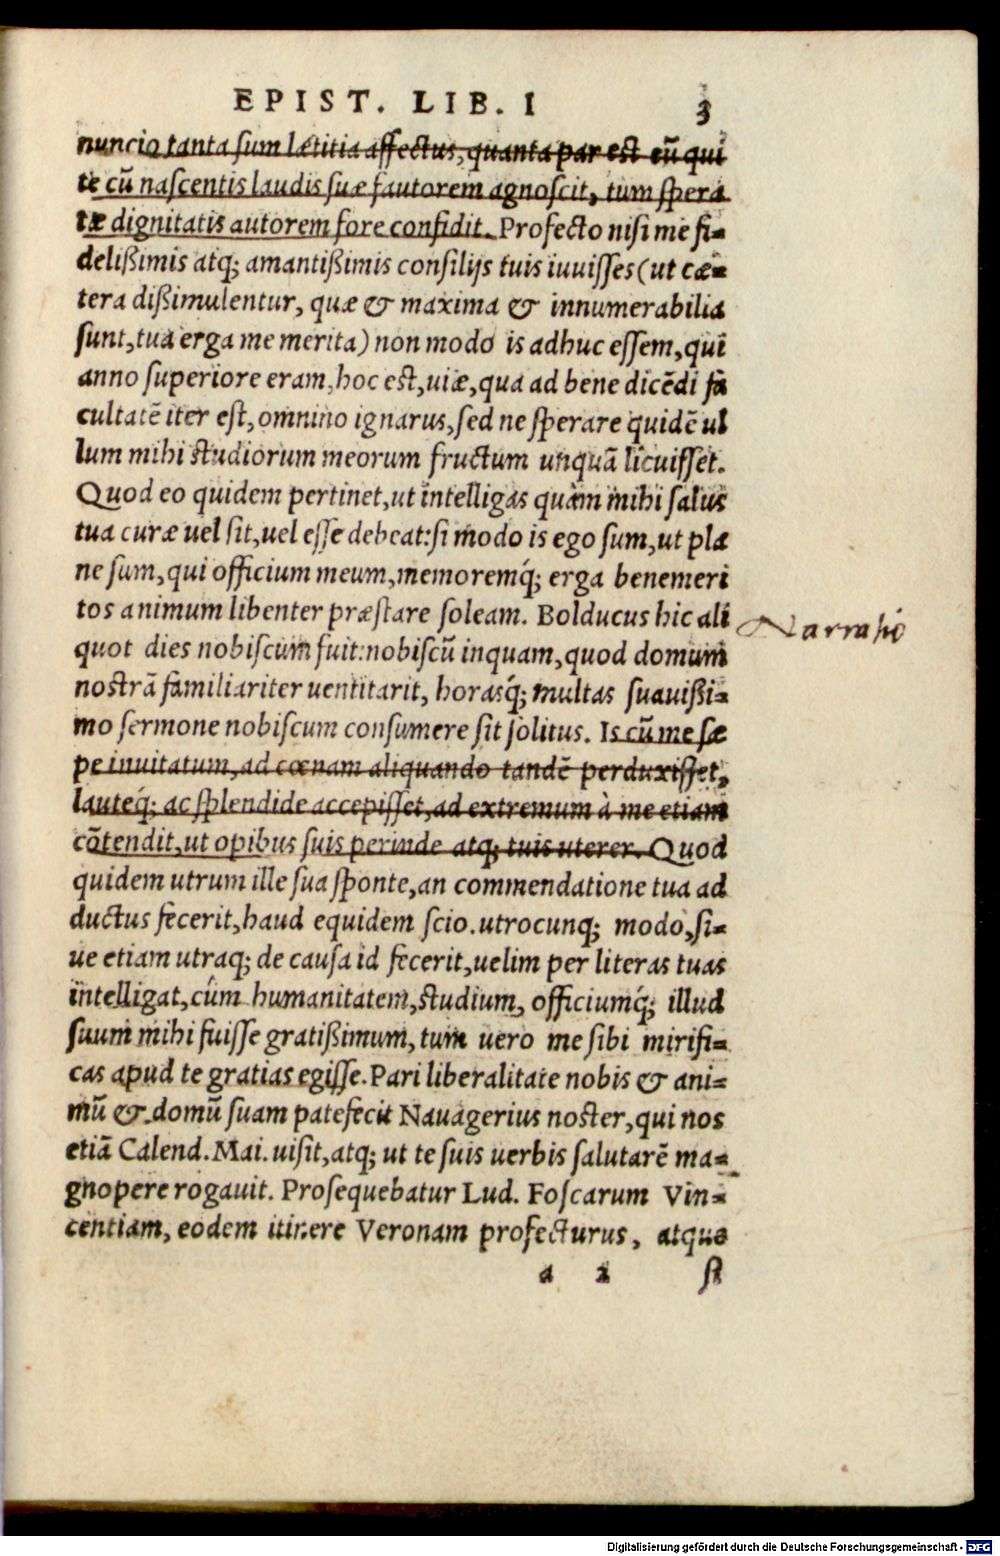 EPIST. LIB. I 3
nuncio tanta sum lætitia affectus, quanta par est eũ qui
te cũ nascentis laudis suæ fautorem agnoscit, tum spera
tæ dignitatis autorem fore confidit. Profecto nisi me fi=
delißimis atq; amantißimis consilijs tuis iuuisses (ut cæ=
tera dißimulentur, quæ & maxima & innumerabilia
sunt, tua erga me merita) non modo is adhuc essem, qui
anno superiore eram, hoc est, uiæ, qua ad bene dicẽdi fa
cultatẽ iter est, omnino ignarus, sed ne sperare quidẽ ul
lum mihi studiorum meorum fructum unquã licuisset.
Quod eo quidem pertinet, ut intelligas quàm mihi salus
tua curæ uel sit, uel esse debeat: si modo is ego sum, ut pla
ne sum, qui officium meum, memoremq́; erga benemeri
tos animum libenter præstare soleam. Bolducus hic ali
Narratio
quot dies nobiscum fuit: nobiscũ inquam, quod domum
nostrã familiariter uentitarit, horasq́; multas suauißi=
mo sermone nobiscum consumere sit solitus. Is cũ me sæ
pe inuitatum, ad cœnam aliquando tandẽ perduxisset,
lauteq́; ac splendide accepisset, ad extremum à me etiam
cõtendit, ut opibus suis perinde atq; tuis uterer. Quod
quidem utrum ille sua sponte, an commendatione tua ad
ductus fecerit, haud equidem scio. utrocunq; modo, si=
ue etiam utraq; de causa id fecerit, uelim per literas tuas
intelligat, cùm humanitatem, studium, officiumq́; illud
suum mihi fuisse gratißimum, tum uero me sibi mirifi=
cas apud te gratias egisse. Pari liberalitate nobis & ani=
mũ & domũ suam patefecit Nauagerius noster, qui nos
etiã Calend. Mai. uisit, atq; ut te suis uerbis salutarẽ ma=
gnopere rogauit. Prosequebatur Lud. Foscarum Vin=
centiam, eodem itinere Veronam profecturus, atque
a 2 si
Digitalisierung gefördert durch die Deutsche Forschungsgemeinschaft - DFG